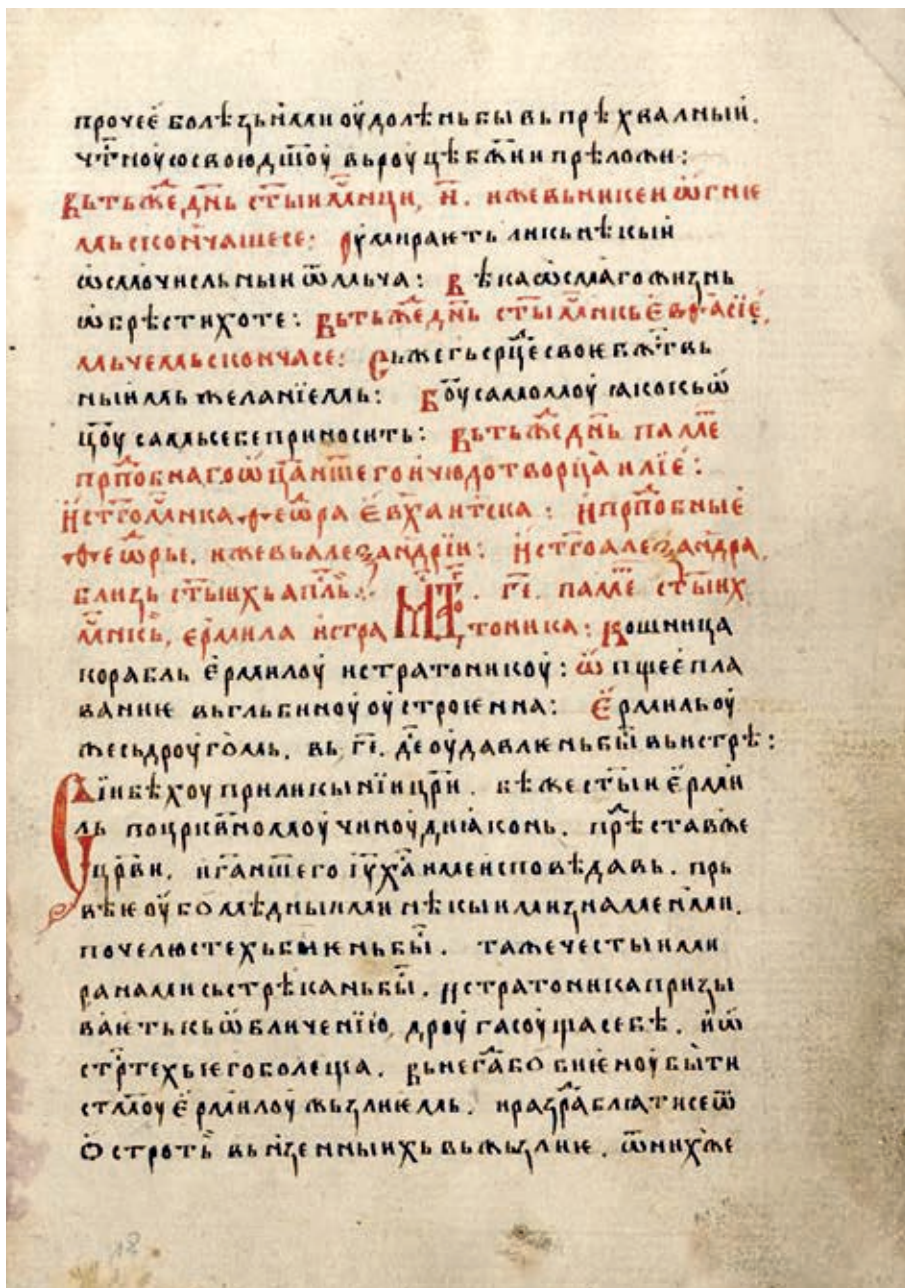 прочеѐ болѣꙁьньми оу҆долѣнь бы вь прѣхвалныи.
чⷭ҇тноую свою дш҃оу вь роуцѣ бж҃ии прѣложи:
Вь тьждⷭ҇е дн҃ь ст҃ыи мч҃ци, и҃. иже вь никеи ѡ҆гнѥ
мь скончашесе: Оу҆мираѥть ликь нѣкыи
ѡ҆смочисльныи ѿ мьча: Вѣка ѡ҆смаго жиꙁнь
ѡ҆брѣсти хоте: Вь тьждⷭ҇е дн҃ь ст҃ы мч҃нкь Е҆вѳасїе,
мьчемь сконча се: Сьжегь срⷣце свою бжⷭ҇твь
ныимь желанїемь: Бо҃у самомоу ꙗко кь ѿ
цо҃у самь себе приносить: Вь тьждⷭ҇е дн҃ь паме
прⷣпⷪбнаго ѿца нш҃его и чюдотворца илїе:
И ст҃го мч҃нка ѳеѡ҆ра е҆вхаитска: И прⷣпⷪбные
ѳеѡ҆ры. иже вь алеѯандрїи: И ст҃го алеѯандра.
блиꙁь ст҃ыихь апⷭ҇ль: Мⷭ҇ц. г҃і. паме ст҃ыих
мч҃нкь, ермила и стратоника: Кошница
корабль е҆рмилоу и стратоникоу: ѿ пщеѐ пла
ваниѥ вь гльбиноу оу҆строѥнна: Е҆рмиль оу
же сь дроугомь. вь г҃і. д҃е оу҆давлѥнь бы вь истрѣ:
Сїи бѣхоу при ликынїи цр҃и. бѣ же ст҃ыи е҆рми
ль по црк҃вномоу чиноу диꙗконь. прⷣѣстав же
цр҃ви. и г҃а нш҃его і҆у х҃а име исповѣдавь. прь
вѣѥ оу҆бо мѣдныими нѣкыими ꙁнаменми.
по челюстехь биѥнь бы. таже честыими
ранами сьстрѣкань бы. и стратоника приꙁы
ваѥть кь ѡ҆бличенїю, дроуга соуща себѣ. и ѡ҆
стрⷭ҇техь ѥго болеща. вьнегⷣа бо биѥноу быти
ст҃моу е҆рмилоу жьꙁлиѥмь. и раꙁрⷣаблꙗти се ѿ
остроть вьнꙁенныихь вь жьꙁлиѥ. ѿ них же